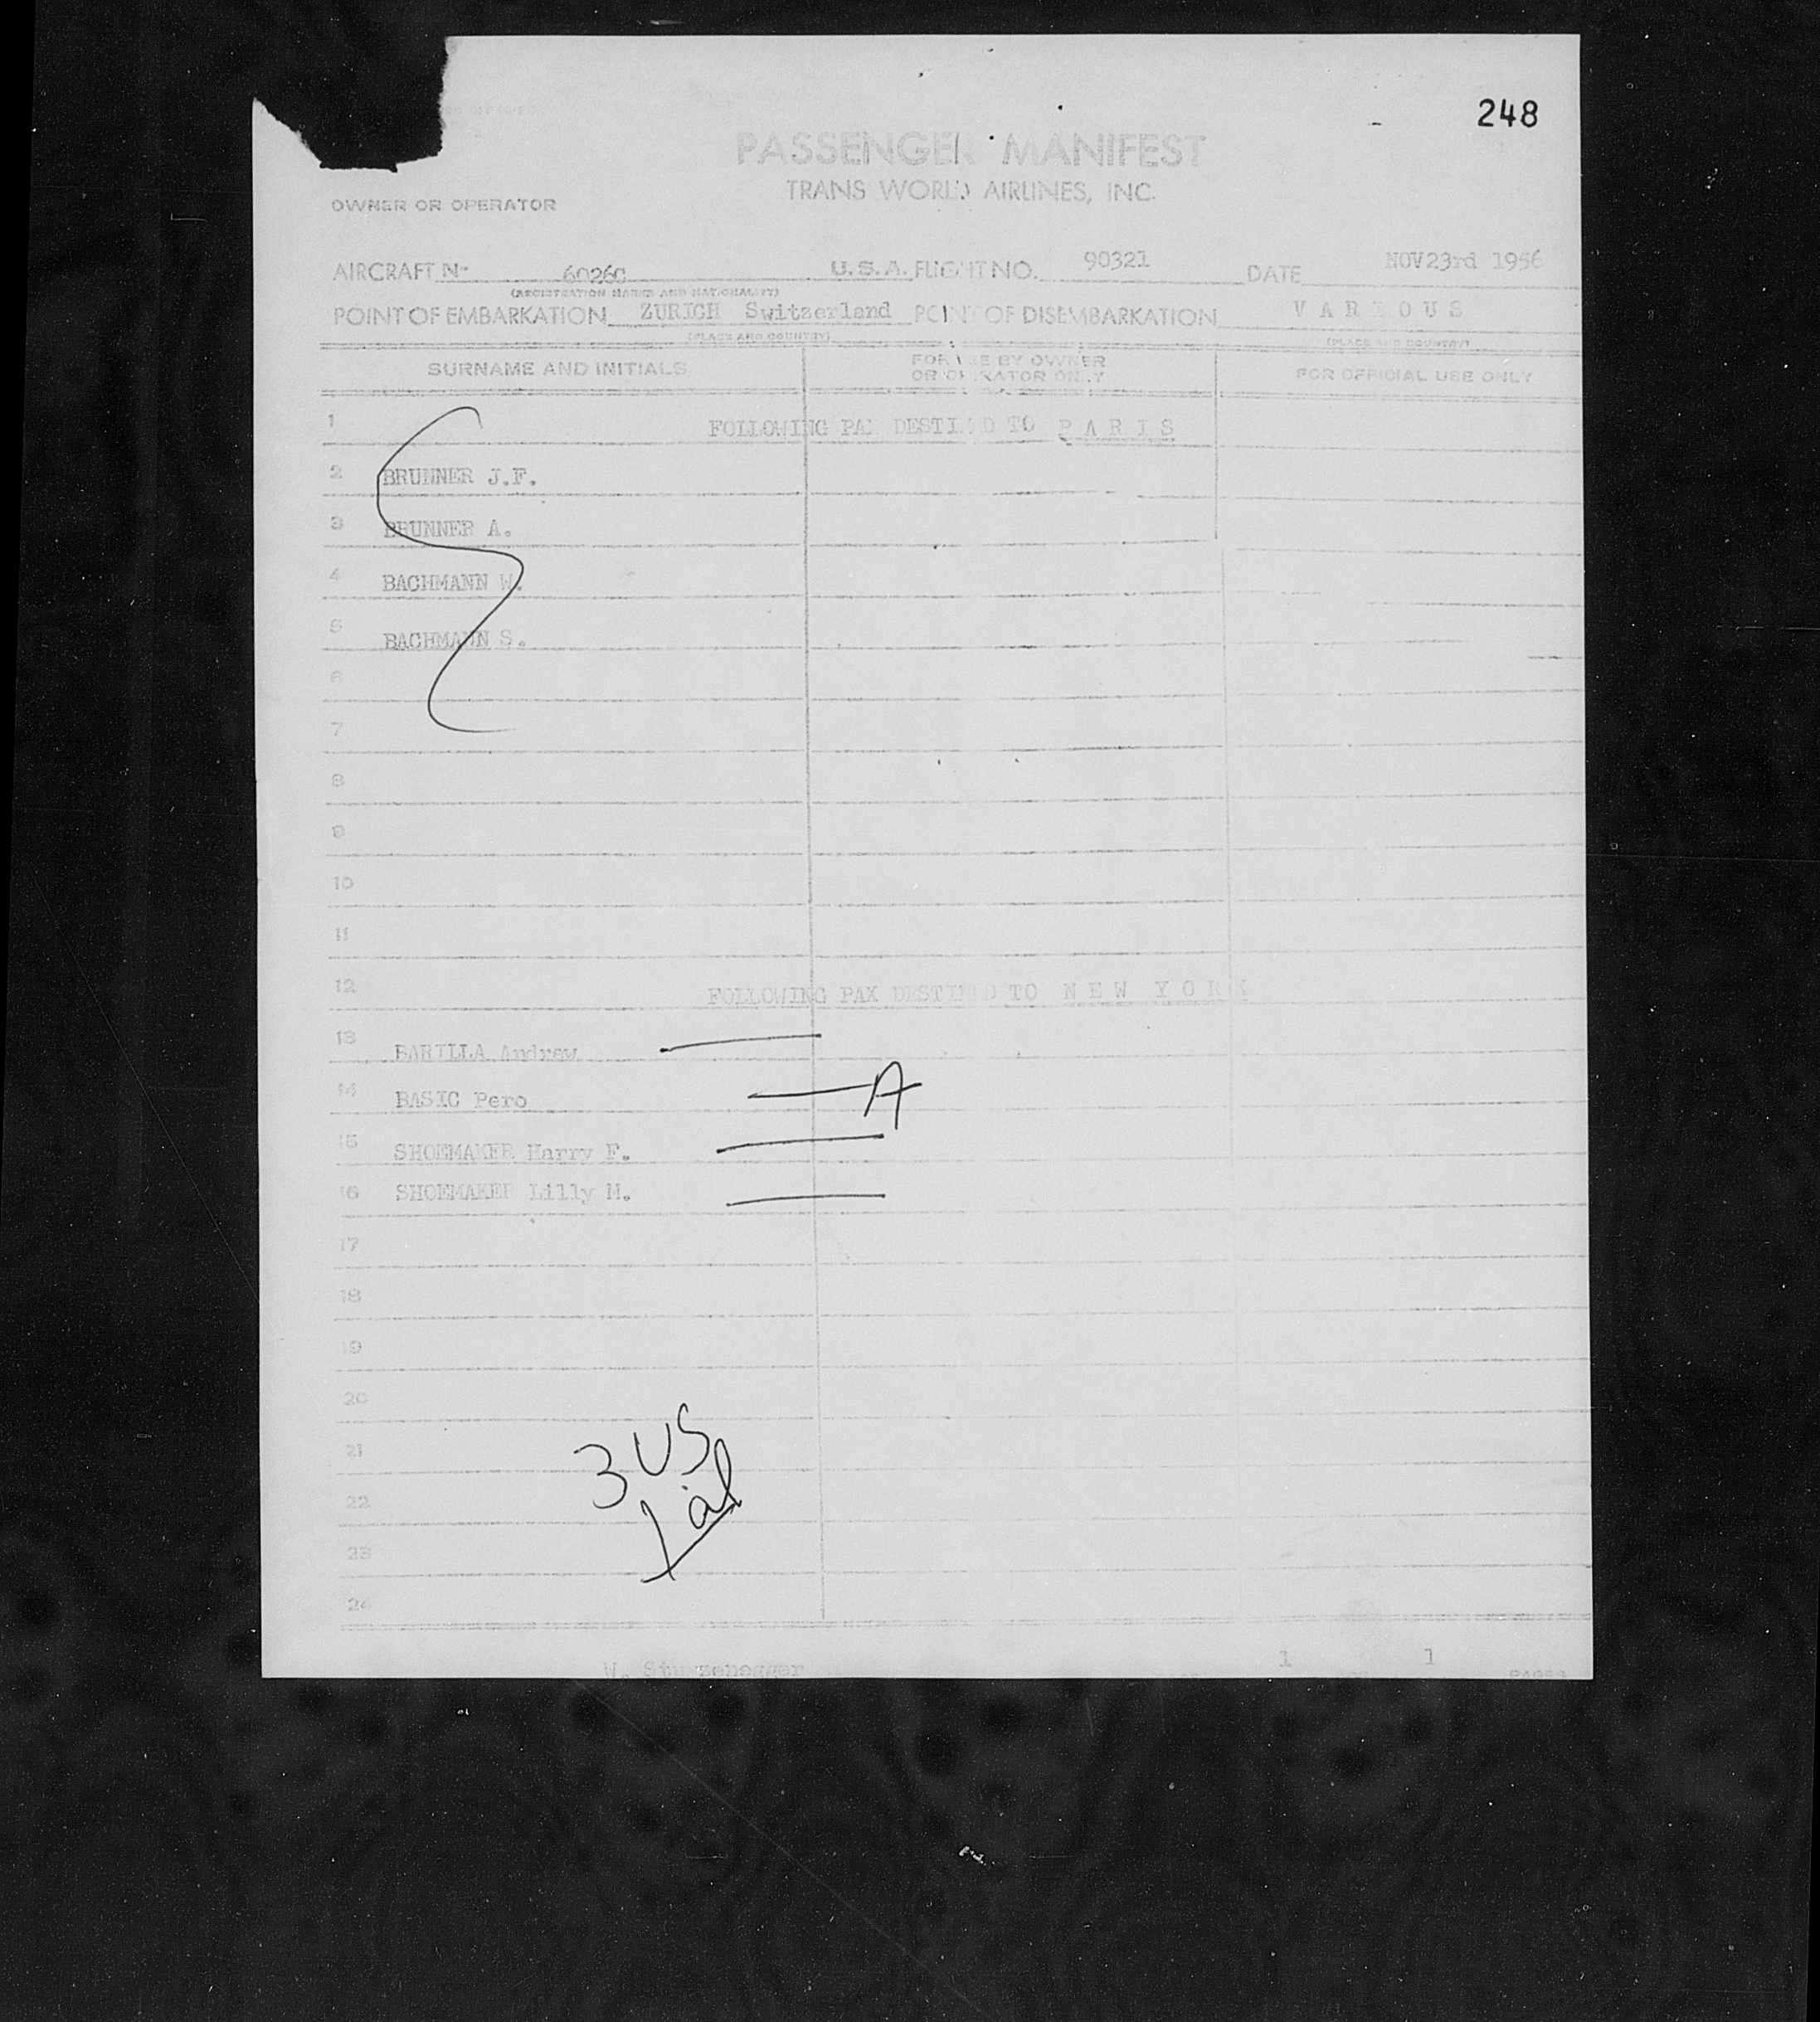 248
PASSENGER MANIFEST
TRANS WORLD AIRLINES, INC.
OWNER OR OPERATOR
AIRCRAFT No 6026C U.S.A. FLIGHT NO. 90321 DATE NOV 23rd 1956
(REGISTRATION MARKS AND NATIONALITY)
POINT OF EMBARKATION ZURICH Switzerland POINT OF DISEMBARKATION VARIOUS
(PLACE AND COUNTRY) (PLACE AND COUNTRY)
SURNAME AND INITIALS FOR USE BY OWNER OR OPERATOR ONLY FOR OFFICIAL USE ONLY
1 FOLLOWING PAX DESTINED TO PARIS
2 BRUNNER J.F.
3 BRUNNER A.
4 BACHMANN W.
5 BACHMANN S.
6
7
8
9
10
11
12 FOLLOWING PAX DESTINED TO NEW YORK
13 BARILLA Andrew
14 BASIC Pero A
15 SHOEMAKER Harry F.
16 SHOEMAKER Lilly M.
17
18
19
20
21 3 US
22 1 al
23
24
W. Sturzenegger 1 1 PAGES